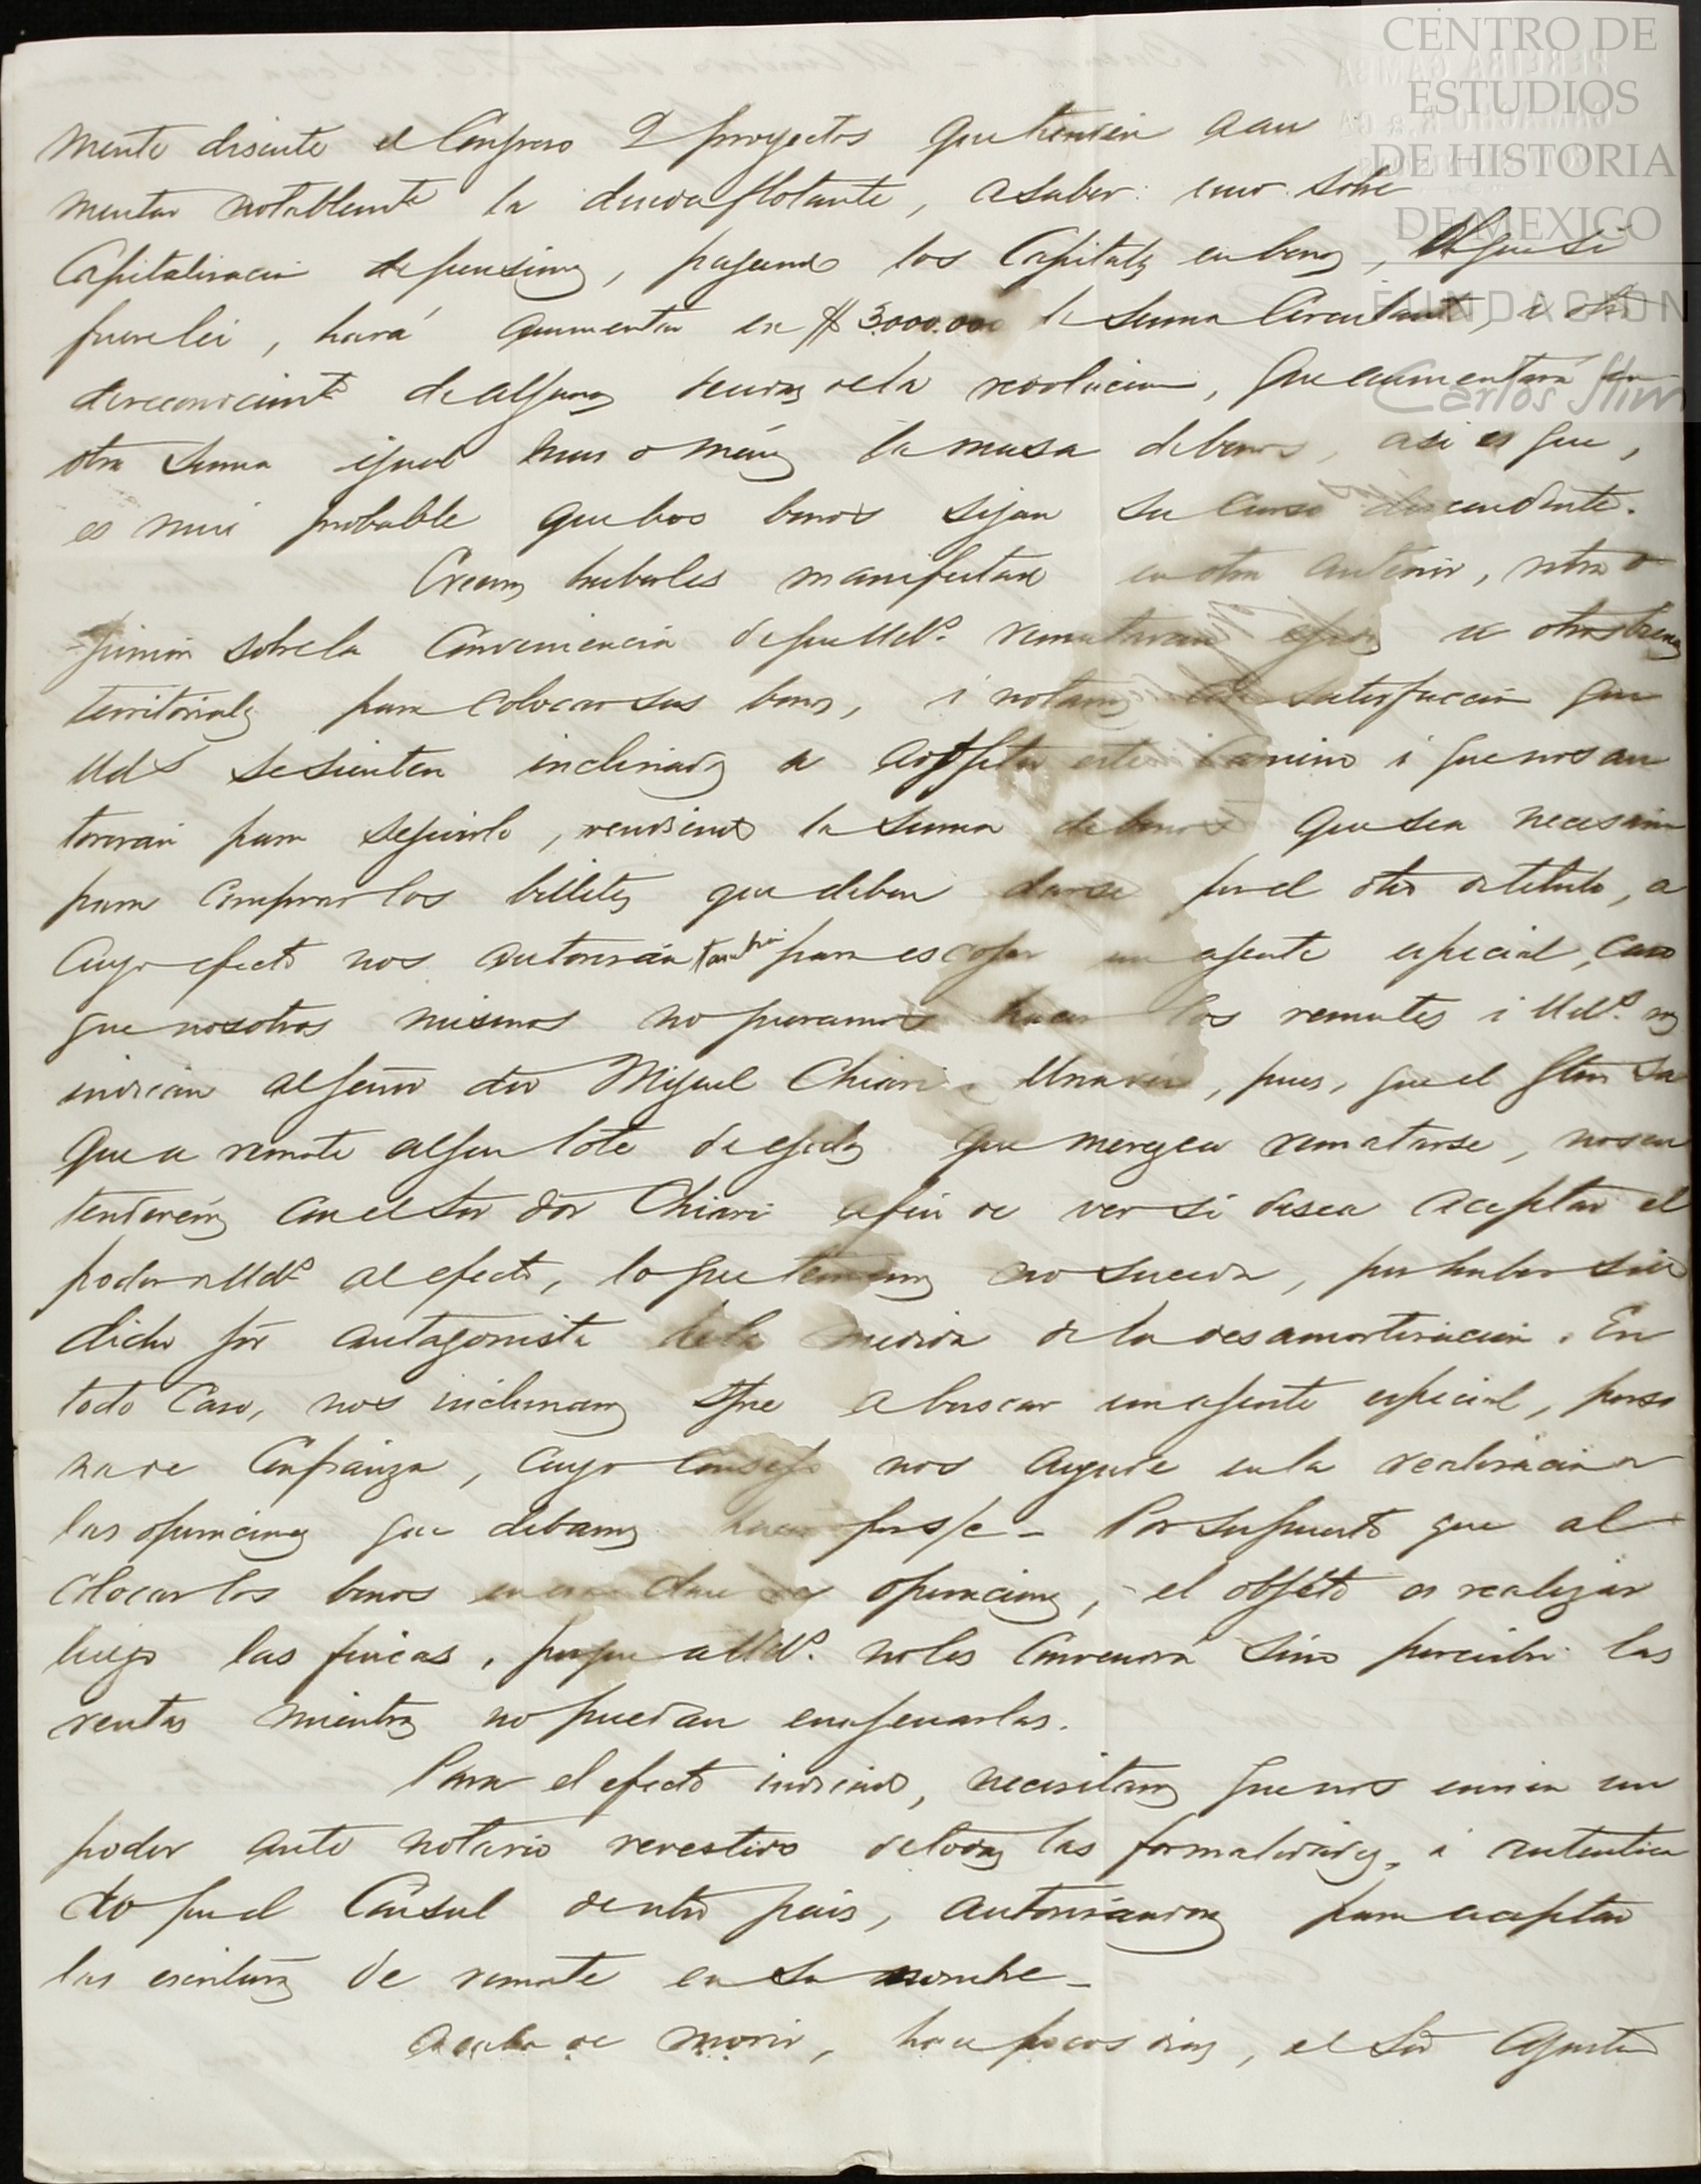 CENTRO DE
ESTUDIOS
DE HISTORIA
DE MEXICO
FUNDACIÓN
Carlos Slim
mente discute el Congreso 2 proyectos que tienden a au
mentar notablemte la deuda flotante, a saber: uno sobre
Capitalizacion de pensiones, pagando los Capitales en bonos, el que si
fuere lei, hará aumentar en $ 3.000.000 la suma Circulante, i otro
de reconocimto de algunas deudas de la revolucion, que aumentará en
otra suma igual mas o menos la masa de bonos, asi es que,
es mui probable que los bonos sigan su curso descendente.
Creemos haberles manifestado en otra anterior, ntra o
pinion sobre la Conveniencia de que Uds. remataran fincas u otros bienes
territoriales para colocar sus bonos, i notamos con satisfaccion que
Uds se sienten inclinados a adoptar este camino i que nos au
torizan para seguirlo, vendiendo la suma de bonos que sea necesaria
para comprar los billetes que deben darse por el otro título, a
cuyo efecto nos autorizan tambn para escojer un ajente especial, caso
que nosotros mismos no pudieramos hacer los remates i Uds. nos
indican al señor dor Miguel Chiari. Una vez, pues, que el Gbno sa
que a remate algun lote de que merezca rematarse, nos en
tenderémos con el Sor dor Chiari a fin de ver si desea aceptar el
poder de Uds. al efecto, lo que tememos no suceda, por haber sido
dicho sor antagonista de la medida de la desamortizacion. En
todo caso, nos inclinamos spre a buscar un ajente especial, perso
na de Confianza, cuyo consejo nos ayude en la realizacion de
las operaciones que debamos hacer por s/c - Por supuesto que al
colocar los bonos en esa clase de operaciones, el objeto es realizar
luego las fincas, porque a Uds. no les Convendrá sino percibir las
rentas mientras no puedan enajenarlas.
Para el efecto indicado, necesitamos que nos envien un
poder ante notario revestido de todas las formalidades, i autentica
do por el Cónsul de ntro pais, autorizandonos para aceptar
las escrituras de remate en su nombre -
Acaba de morir, hace pocos dias, el Sor Agustin